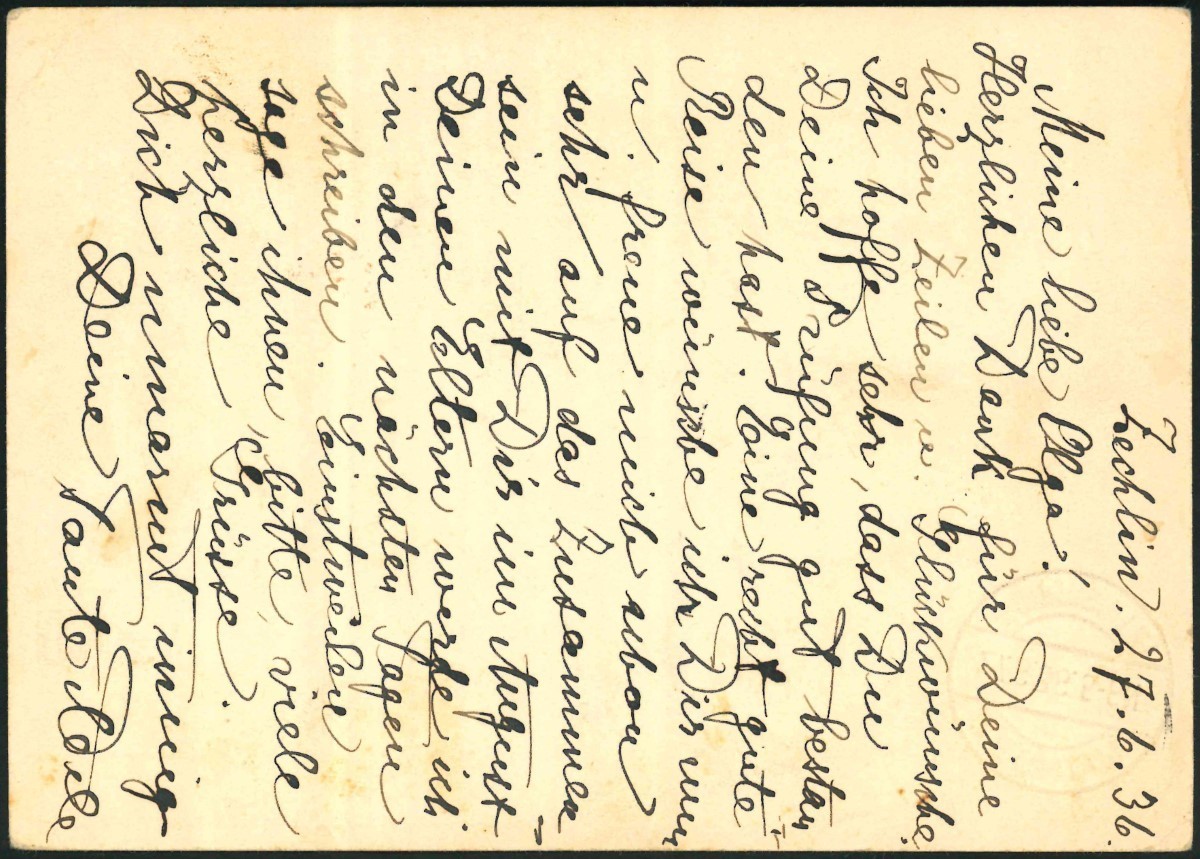 Zechlin. 27.6.36.
Meine liebe Olga!
Herzlichen Dank für Deine
lieben Zeilen u. Glückwünsche.
Ich hoffe sehr, dass Du
Deine Prüfung gut bestan
den hast. Eine recht gute
Reise wünsche ich Dir nun
u. freue mich schon
sehr auf das Zusammen=
sein mit Dir im August
Deinen Eltern werde ich
in den nächsten Tagen
schreiben. Einstweilen
sage ihnen, bitte, viele
herzliche Grüsse
Dich umarmt innig
Deine Tante